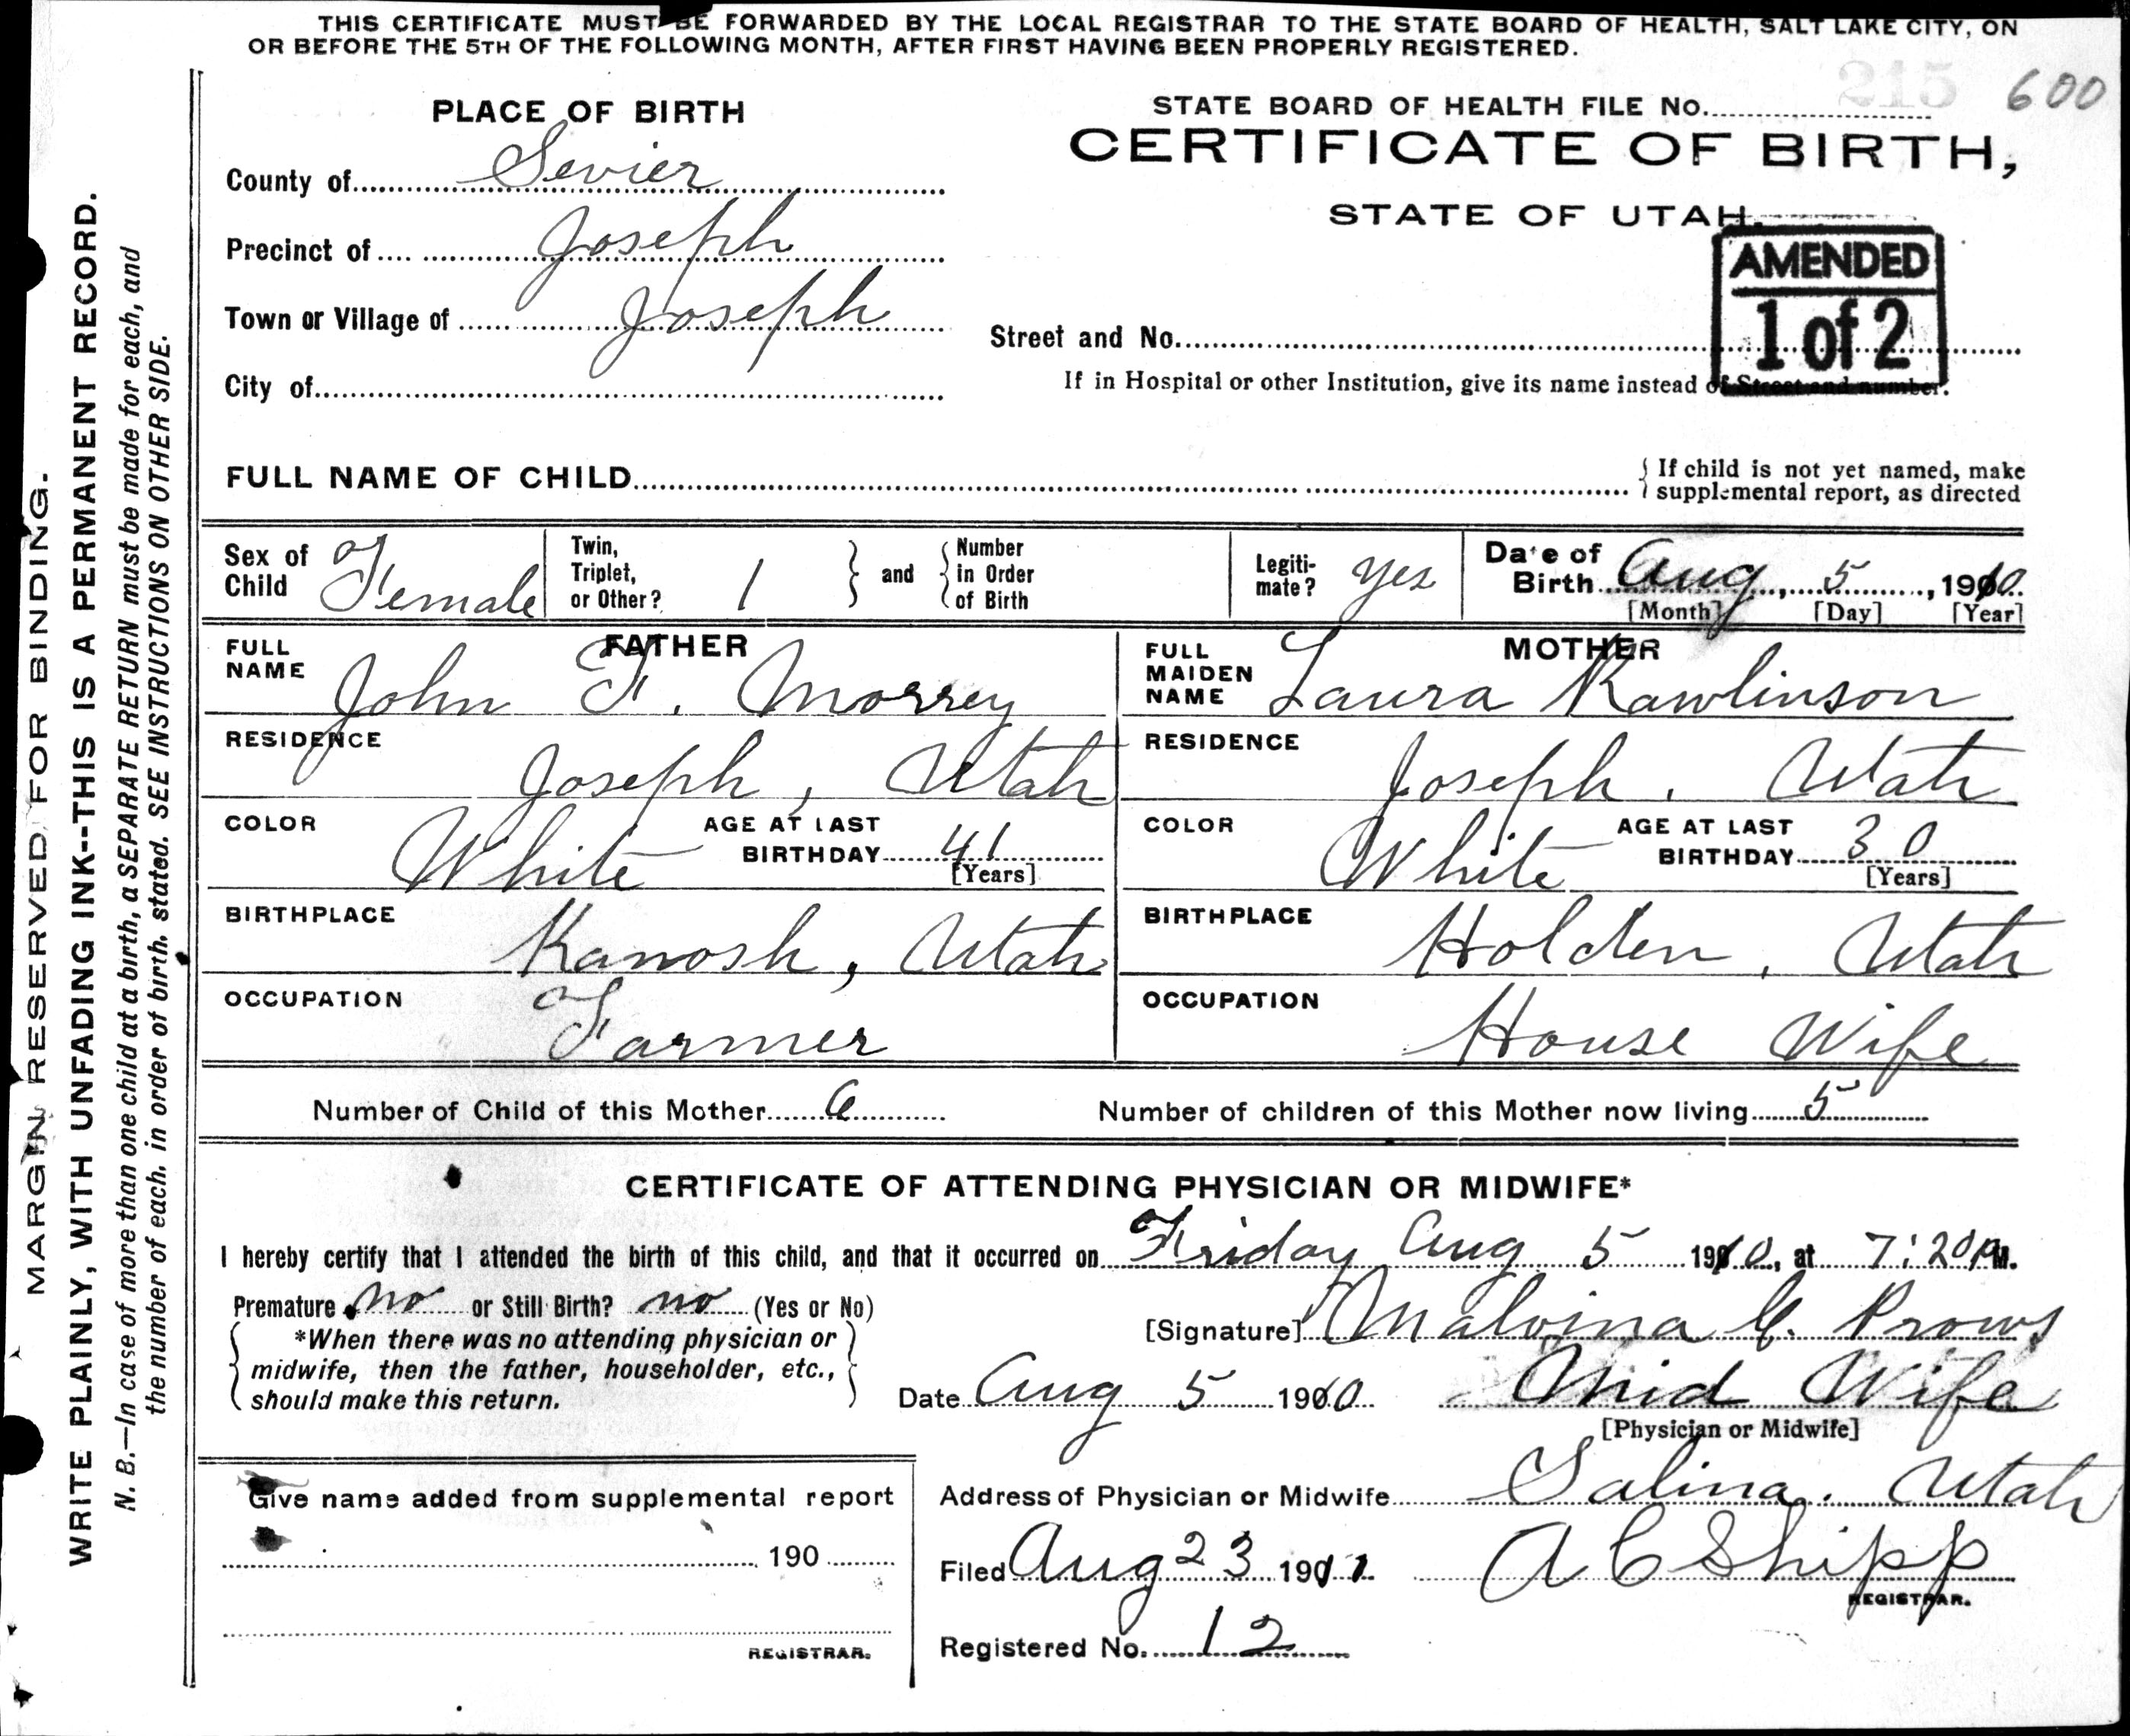 THIS CERTIFICATE MUST BE FORWARDED BY THE LOCAL REGISTRAR TO THE STATE BOARD OF HEALTH, SALT LAKE CITY, ON
OR BEFORE THE 5TH OF THE FOLLOWING MONTH, AFTER FIRST HAVING BEEN PROPERLY REGISTERED.
MARGIN RESERVED FOR BINDING.
WRITE PLAINLY, WITH UNFADING INK--THIS IS A PERMANENT RECORD.
N. B.—In case of more than one child at a birth, a SEPARATE RETURN must be made for each, and
the number of each, in order of birth, stated. SEE INSTRUCTIONS ON OTHER SIDE.
215 600
PLACE OF BIRTH
County of Sevier
Precinct of Joseph
Town or Village of Joseph
City of
STATE BOARD OF HEALTH FILE No.
CERTIFICATE OF BIRTH,
STATE OF UTAH.
AMENDED
1 of 2
Street and No.
If in Hospital or other Institution, give its name instead of Street and number.
FULL NAME OF CHILD
If child is not yet named, make
supplemental report, as directed
Sex of Child Female
Twin, Triplet, or Other? 1 and Number in Order of Birth
Legitimate? yes
Date of Birth Aug 5, 1910
[Month] [Day] [Year]
FATHER
FULL NAME John F. Morrey
RESIDENCE Joseph, Utah
COLOR White AGE AT LAST BIRTHDAY 41
[Years]
BIRTHPLACE Kanosh, Utah
OCCUPATION Farmer
MOTHER
FULL MAIDEN NAME Laura Rawlinson
RESIDENCE Joseph, Utah
COLOR White AGE AT LAST BIRTHDAY 30
[Years]
BIRTHPLACE Holden, Utah
OCCUPATION House Wife
Number of Child of this Mother 6 Number of children of this Mother now living 5
CERTIFICATE OF ATTENDING PHYSICIAN OR MIDWIFE*
I hereby certify that I attended the birth of this child, and that it occurred on Friday Aug 5 1910, at 7:20 P M.
Premature no or Still Birth? no (Yes or No)
*When there was no attending physician or
midwife, then the father, householder, etc.,
should make this return.
[Signature] Malvina C. Prows
Date Aug 5 1910 Mid Wife
[Physician or Midwife]
Give name added from supplemental report
190
REGISTRAR.
Address of Physician or Midwife Salina, Utah
Filed Aug 23 1911 A C Shipp
REGISTRAR.
Registered No. 12